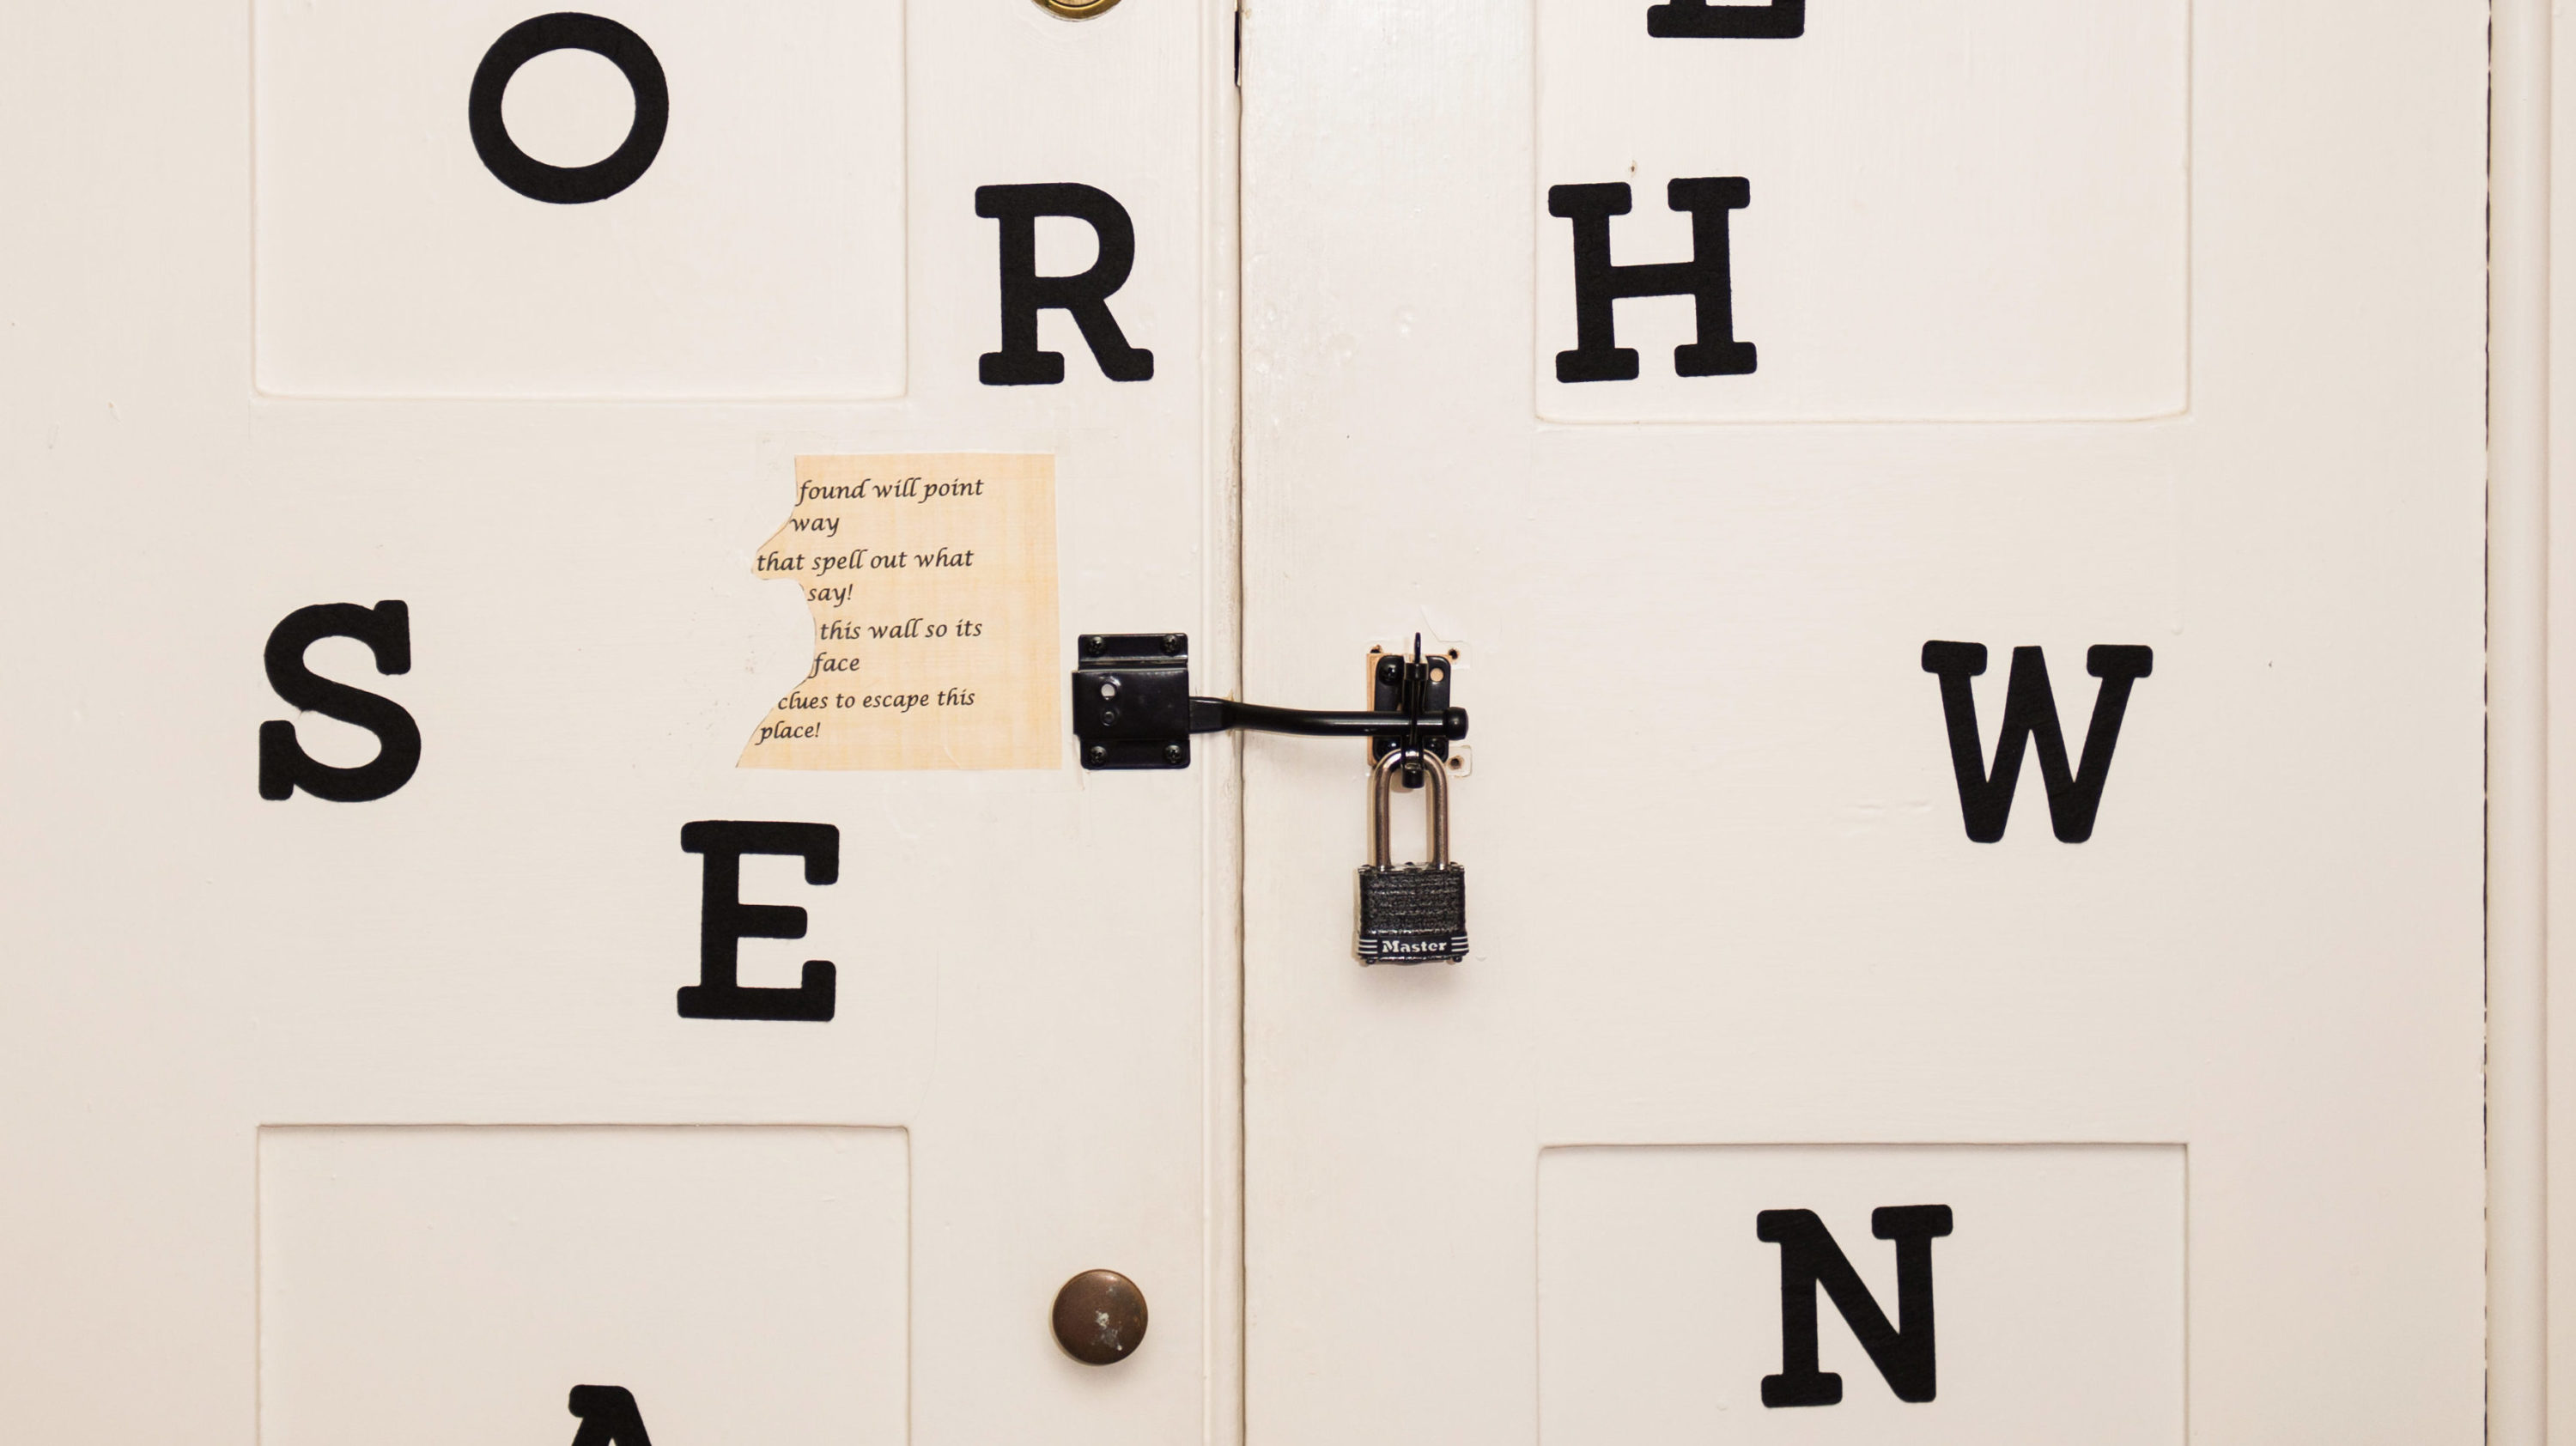 O
R
H
found will point
way
that spell out what
say!
this wall so its
face
clues to escape this
place!
S
W
E
Master
N